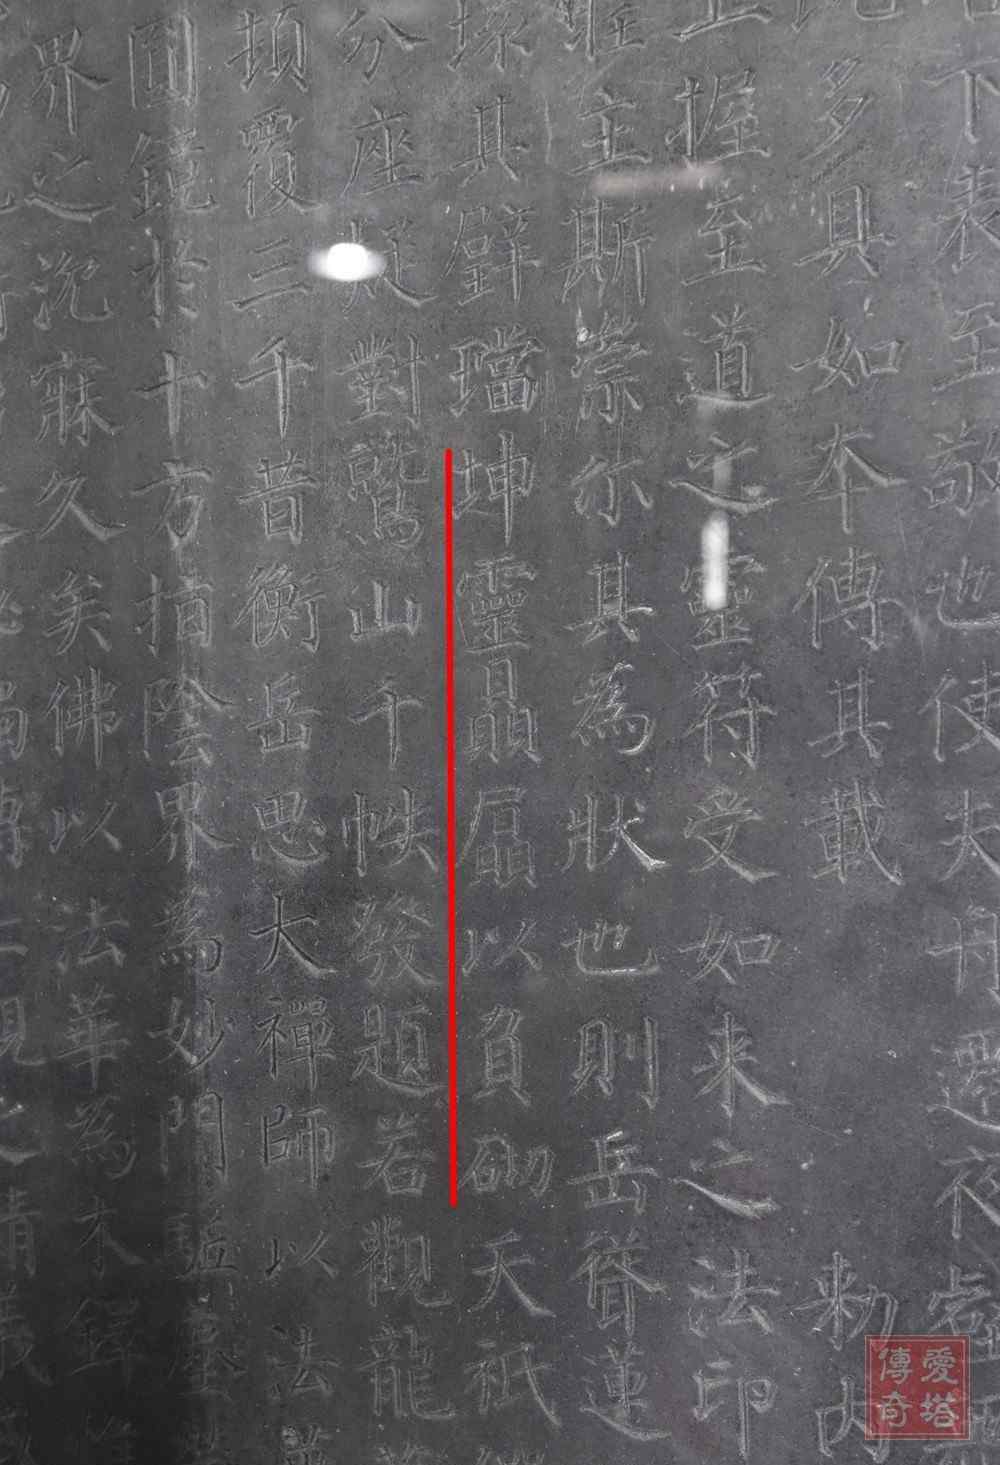 下表至敬也使夫舟遷夜壑
多具如本傳其載 敕內
握至道之靈符受如来之法印
主斯崇尓其為狀也則岳聳蓮
環其璧璫坤靈贔屭以負砌天祇
分座疑對鷲山千帙發題若觀龍
頂覆三千昔衡岳思大禪師以法
圓鏡於十方指陰界為妙門駈塵
界之沉寐久矣佛以法華為木鐸
愛塔傳奇